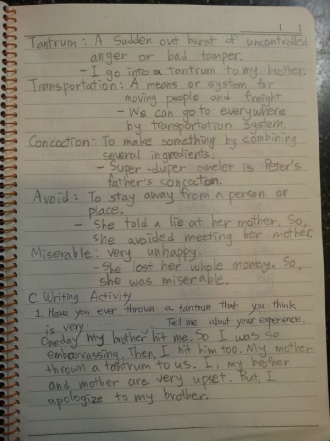 Tantrum : A Sudden out burst of uncontrolled
anger or bad tamper.
- I go into a tantrum to my brother.
Transportation : A means or system for
moving people and freight.
- We can go to everywhere
by transportation system.
Concoction : To make something by combining
several ingredients.
- Super-duper omelet is Peter's
father's concoction.
Avoid : To stay away from a person or
place.
- She told a lie at her mother. So,
she avoided meeting her mother.
Miserable : Very unhappy.
- She lost her whole money. So,
she was miserable.
C. Writing Activity
1. Have you ever thrown a tantrum that you think
is very
Tell me about your experience.
Oneday my brother hit me. So I was so
embarrassing. Then, I hit him too. My mother
thrown a tantrum to us. I, my brother
and mother are very upset. But I
apologize to my brother.